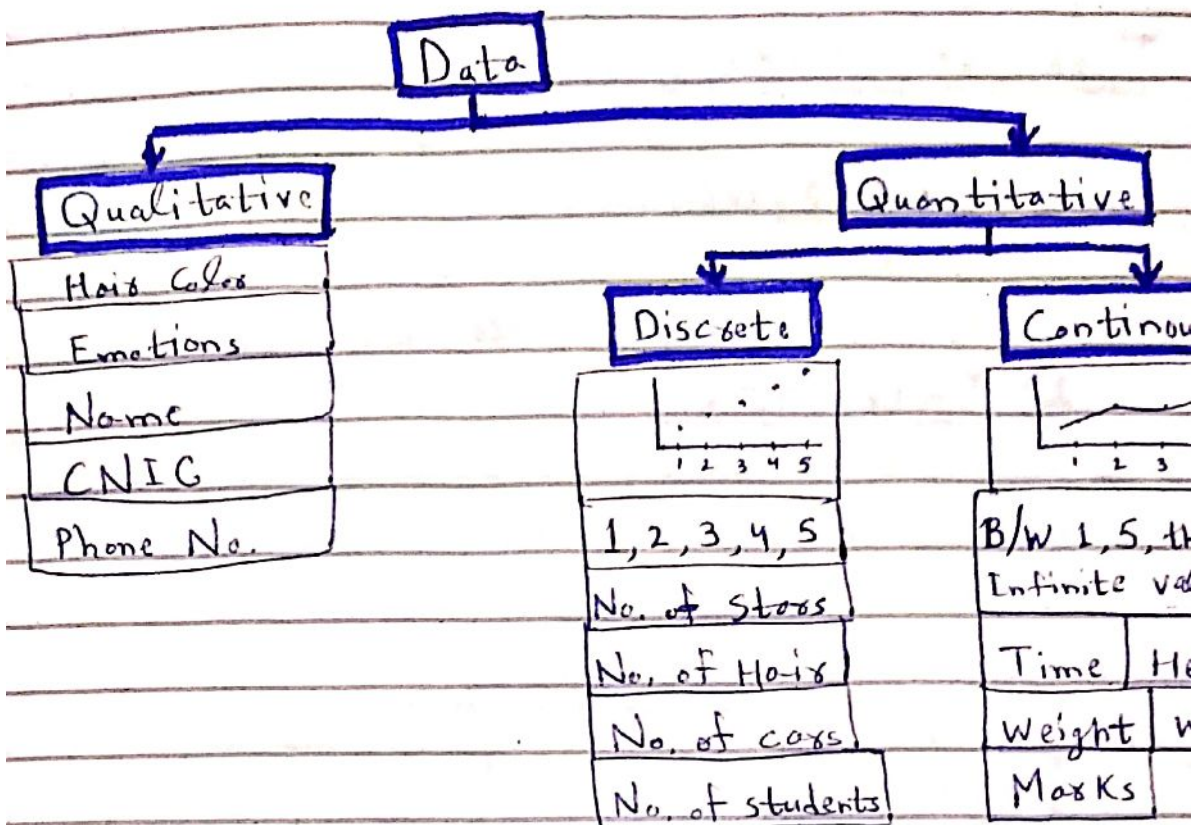 Data
Qualitative
Quantitative
Hair Color
Emotions
Name
CNIC
Phone No.
Discrete
1 2 3 4 5
1, 2, 3, 4, 5
No. of Stars
No. of Hair
No. of cars
No. of students
Continou
1 2 3
B/W 1, 5, th
Infinite va
Time He
Weight W
Marks